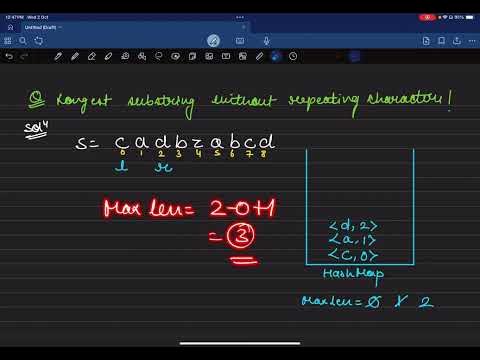 12:47PM Wed 2 Oct
Untitled (Draft)
Q Longest substring without repeating characters!
Solⁿ
S= c a d b z a b c d
0 1 2 3 4 5 6 7 8
l r
Max len= 2-0+1
= 3
<d, 2>
<a, 1>
<c, 0>
HashMap
MaxLen= 0 1 2